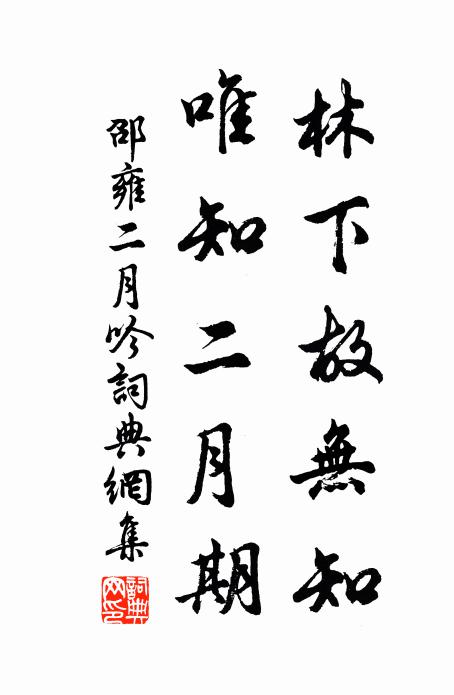 林下故無知
唯知二月期
邵雍二月吟詞典網集
詞典網印